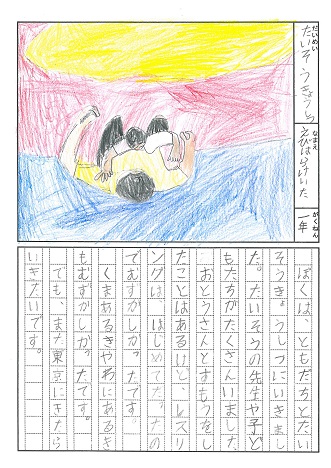 だいめい
たいそうきょうしつ
なまえ
えびはらけいた
がくねん
一年
ぼくは、ともだちとたい
そうきょうしつにいきまし
た。たいそうの先生や子ど
もたちがたくさんいました。
おとうさんとすもうをし
たことはあるけど、レスリ
ングは、はじめてだったの
でむずかしかったです。
くまあるきやわにあるき
もむずかしかったです。
でも、また東京にきたら
いきたいです。